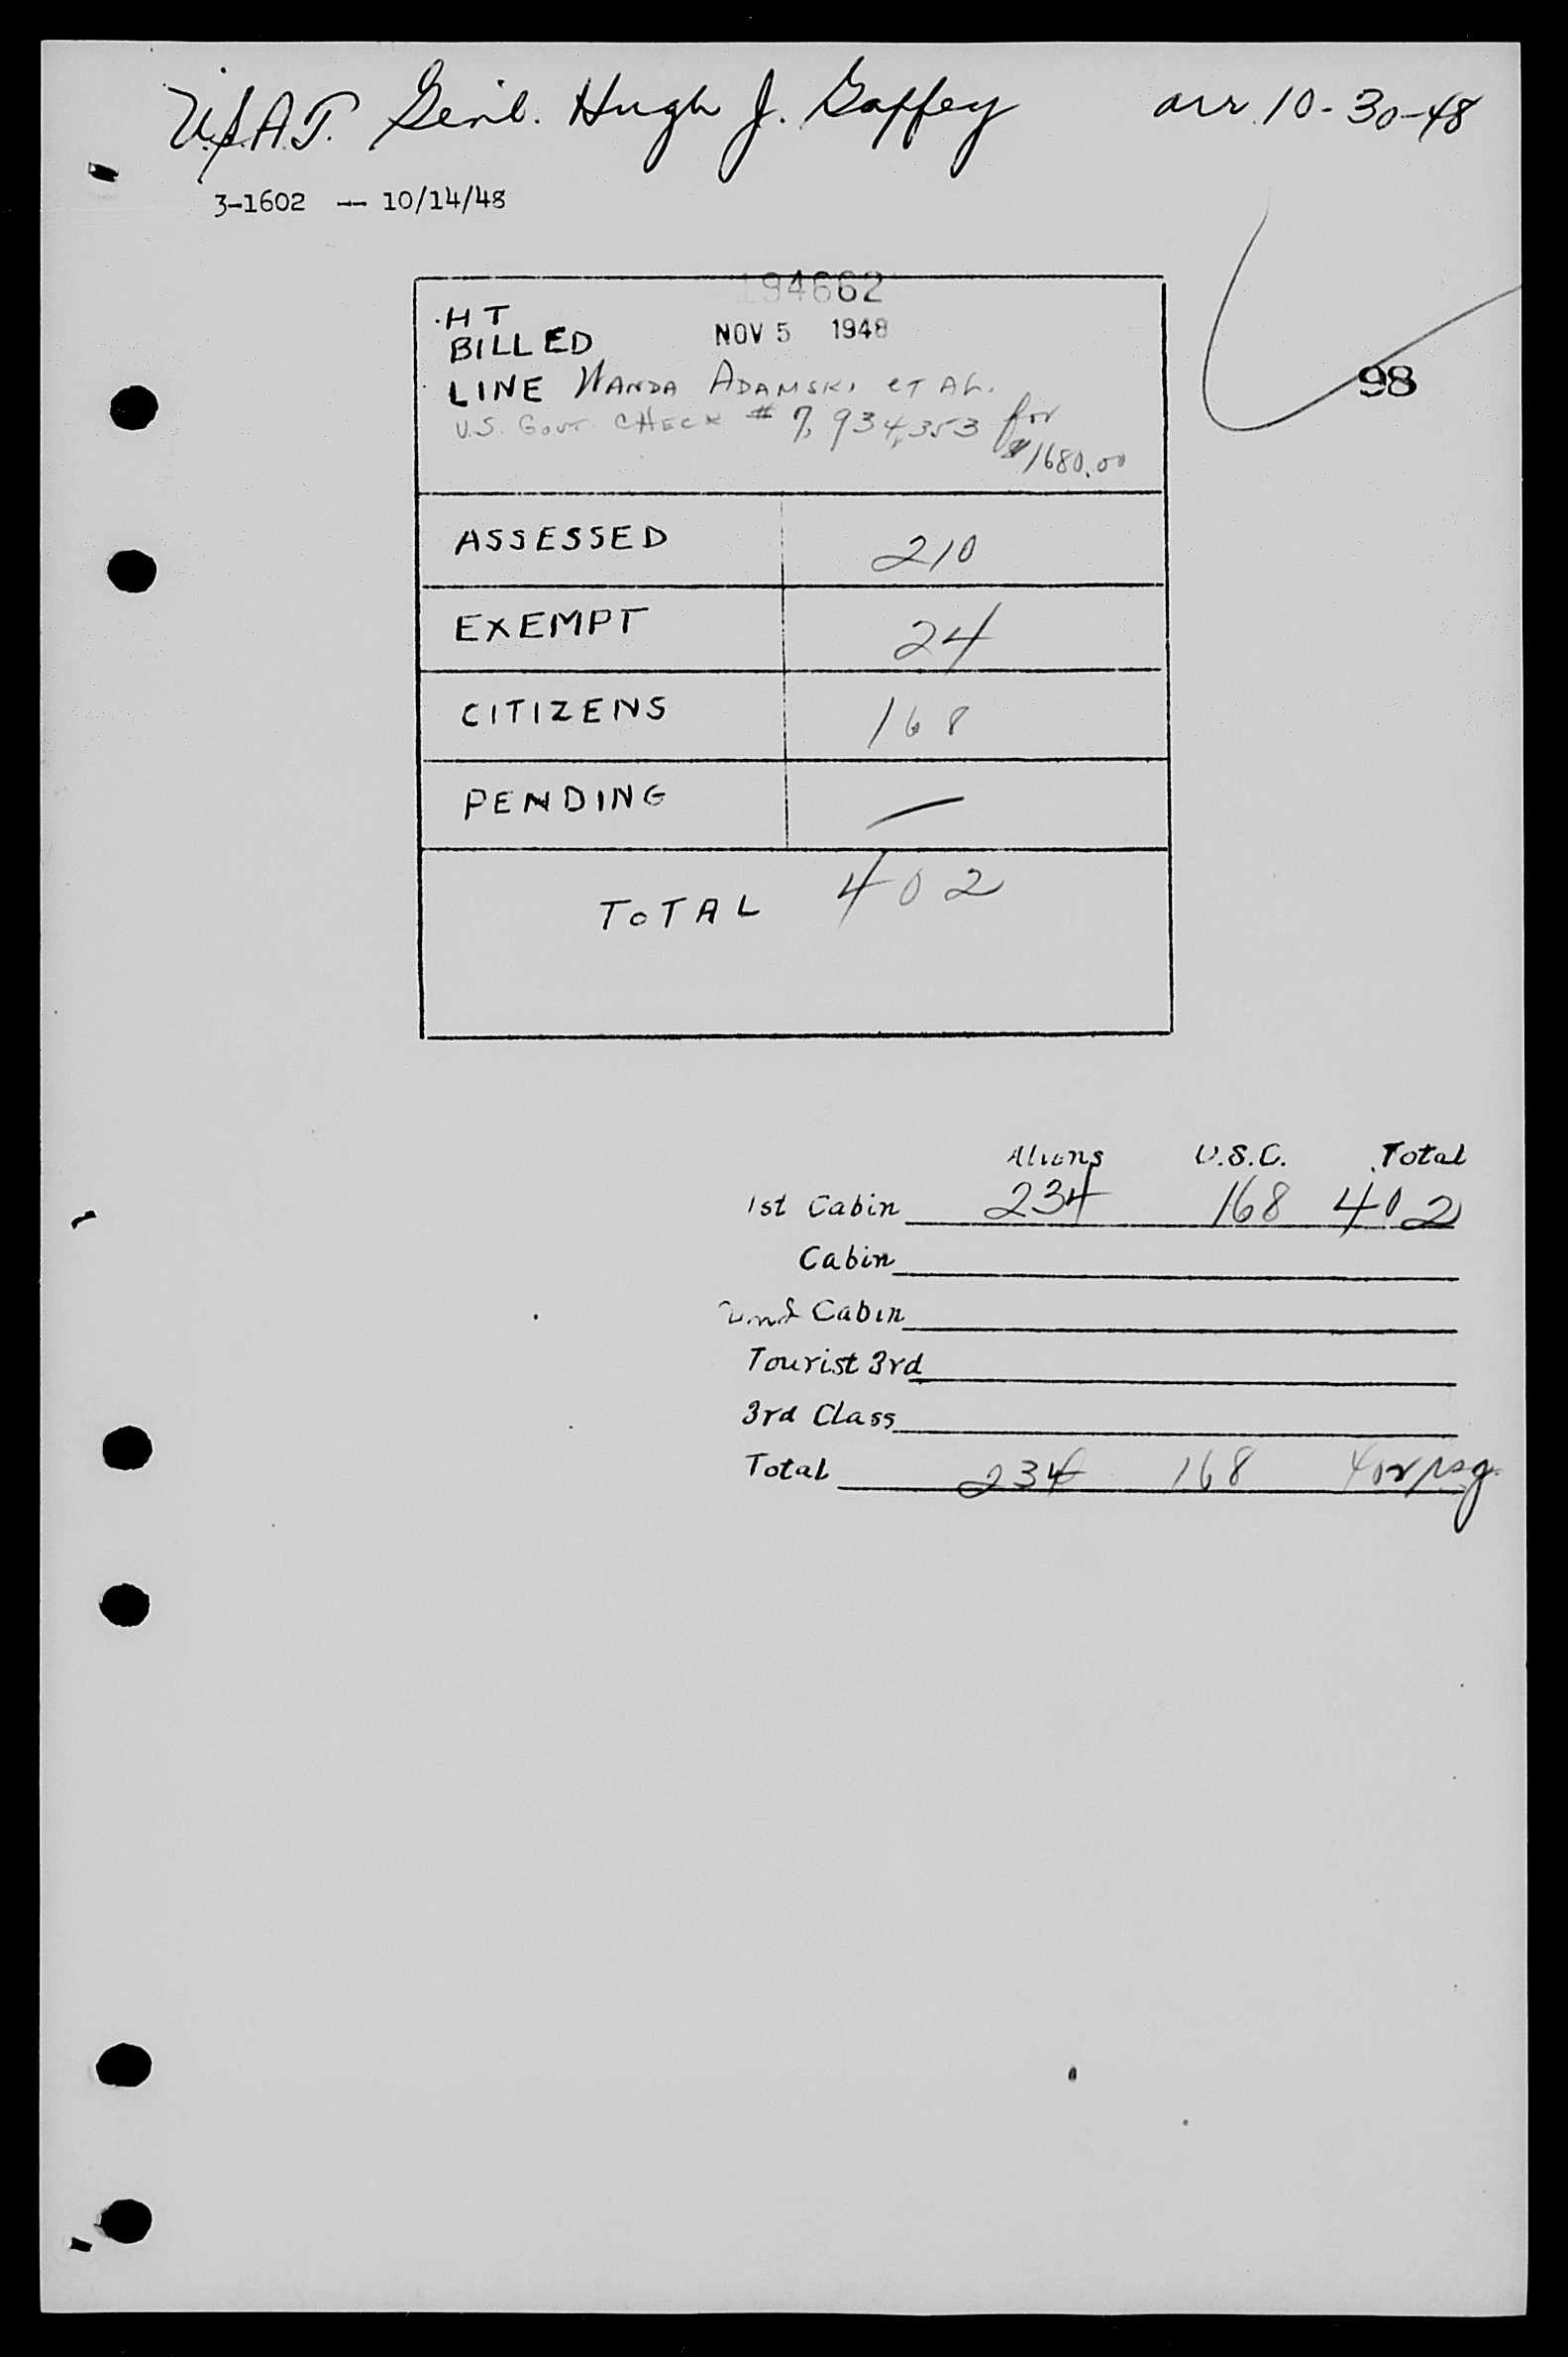 U.S.A.T. Genl. Hugh J. Gaffey arr. 10-30-48
3-1602 -- 10/14/48
194662
HT
BILLED NOV 5 1948
LINE WANDA ADAMSKI ET AL.
U.S. GOVT CHECK # 7,934,353 for
$1680.00
98
ASSESSED 210
EXEMPT 24
CITIZENS 168
PENDING —
TOTAL 402
Aliens U.S.C. Total
1st Cabin 234 168 402
Cabin
2nd Cabin
Tourist 3rd
3rd Class
Total 234 168 402 psg.